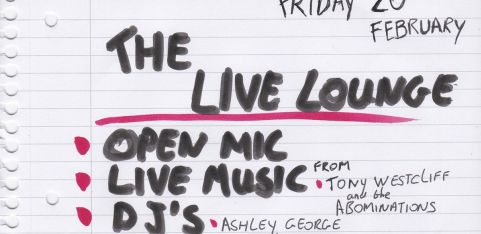 FRIDAY 20
FEBRUARY
THE
LIVE LOUNGE
OPEN MIC
LIVE MUSIC FROM
TONY WESTCLIFF
and the
ABOMINATIONS
DJ'S
ASHLEY GEORGE